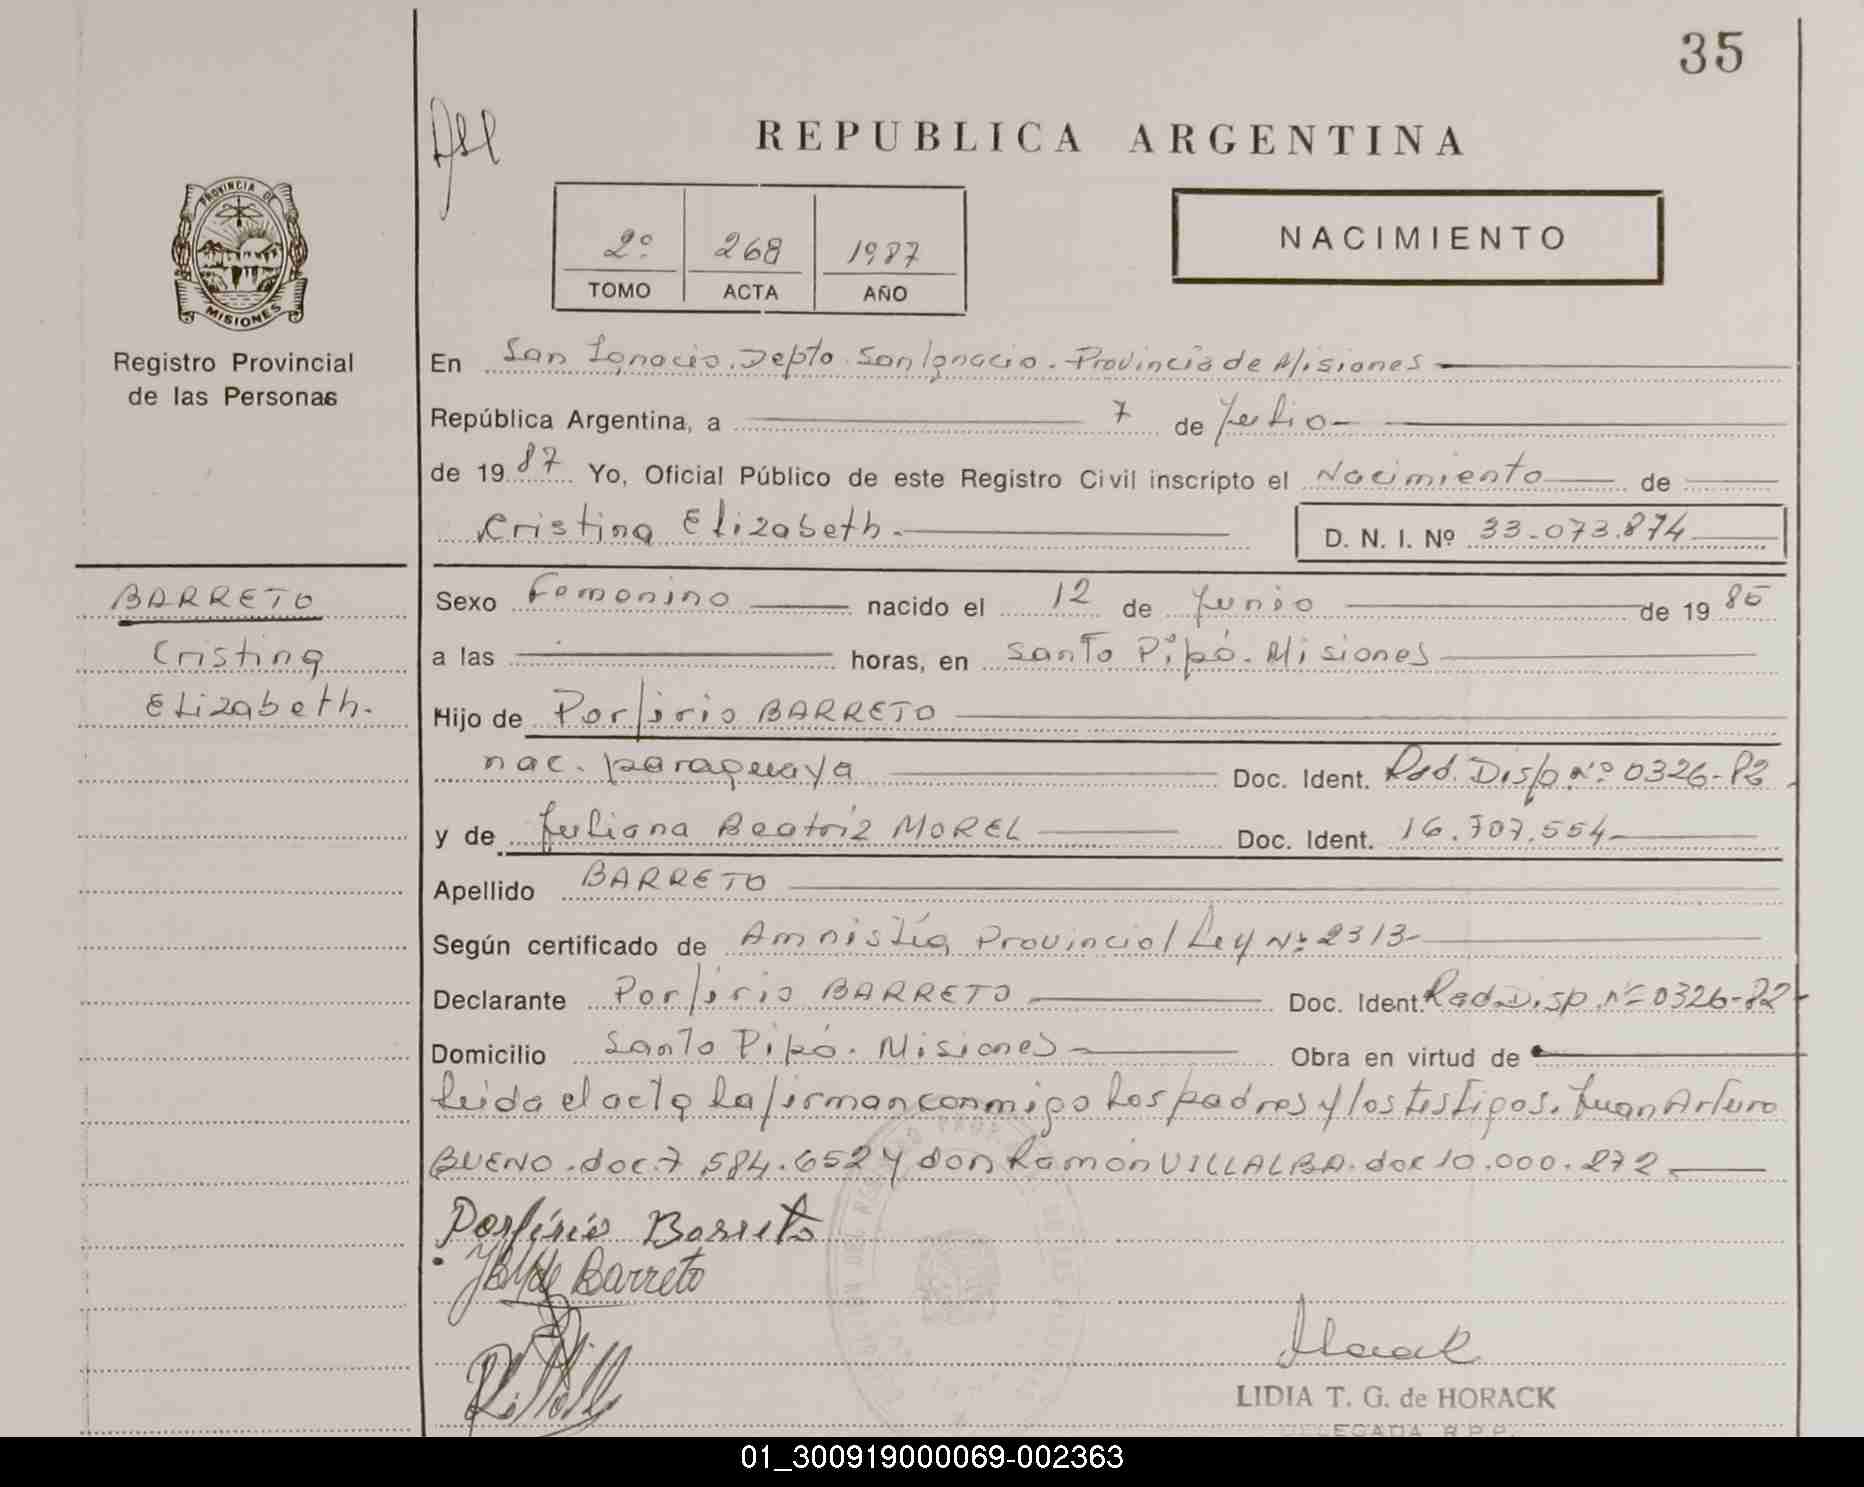 35
REPUBLICA ARGENTINA
PROVINCIA DE
MISIONES
2º 268 1987
TOMO ACTA AÑO
NACIMIENTO
Registro Provincial
de las Personas
En San Ignacio. Depto. San Ignacio. Provincia de Misiones
República Argentina, a 7 de Julio
de 1987 Yo, Oficial Público de este Registro Civil inscripto el Nacimiento de
Cristina Elizabeth. D. N. I. Nº 33.073.874
BARRETO
Cristina
Elizabeth.
Sexo Femenino nacido el 12 de Junio de 19
a las horas, en Santo Pipó. Misiones
Hijo de Porfirio BARRETO
nac. paraguaya Doc. Ident. Rad. Disp. Nº 0326-82
y de Juliana Beatriz MOREL Doc. Ident. 16.707.554
Apellido BARRETO
Según certificado de Amnistía Provincial Ley Nº 2313
Declarante Porfirio BARRETO Doc. Ident. Rad. Disp. Nº 0326-82
Domicilio Santo Pipó. Misiones Obra en virtud de
leida el acta la firman conmigo los padres y los testigos. Juan Arturo
BUENO. doc. 7.584.652 y don Ramón VILLALBA. doc 10.000.272
Porfirio Barreto
Barreto
LIDIA T. G. de HORACK
DELEGADA R.P.P.
01_300919000069-002363